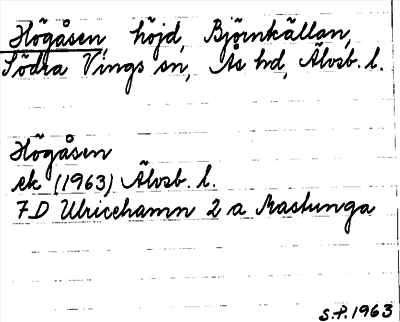 Högåsen, höjd, Björnkällan,
Södra Vings sn, Ås hd, Älvsb. l.
Högåsen
ek (1963) Älvsb. l.
7D Ulricehamn 2 a Mastunga
S.P. 1963